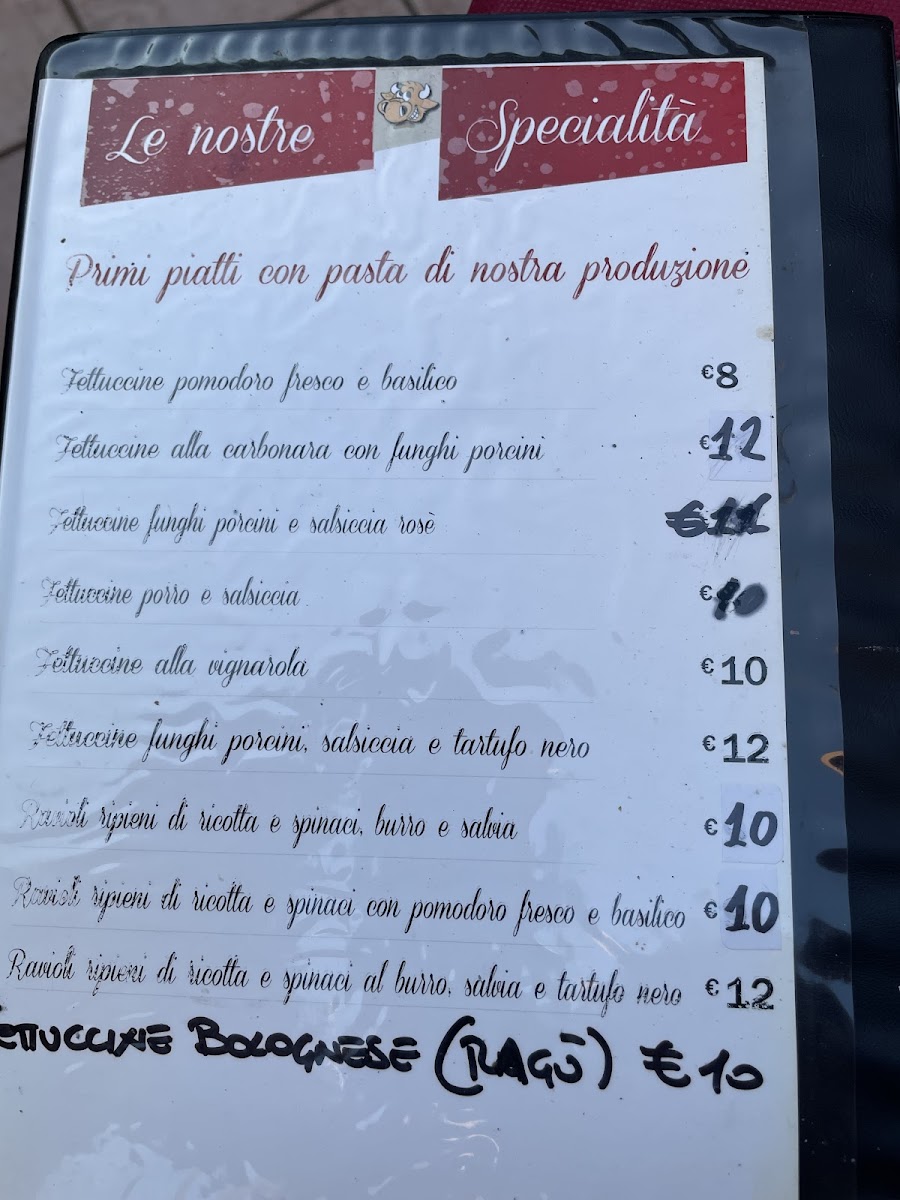 Le nostre Specialità
Primi piatti con pasta di nostra produzione
Fettuccine pomodoro fresco e basilico €8
Fettuccine alla carbonara con funghi porcini €12
Fettuccine funghi porcini e salsiccia rosè €11
Fettuccine porro e salsiccia €10
Fettuccine alla vignarola €10
Fettuccine funghi porcini, salsiccia e tartufo nero €12
Ravioli ripieni di ricotta e spinaci, burro e salvia €10
Ravioli ripieni di ricotta e spinaci con pomodoro fresco e basilico €10
Ravioli ripieni di ricotta e spinaci al burro, salvia e tartufo nero €12
ETTUCCINE BOLOGNESE (RAGÙ) €10